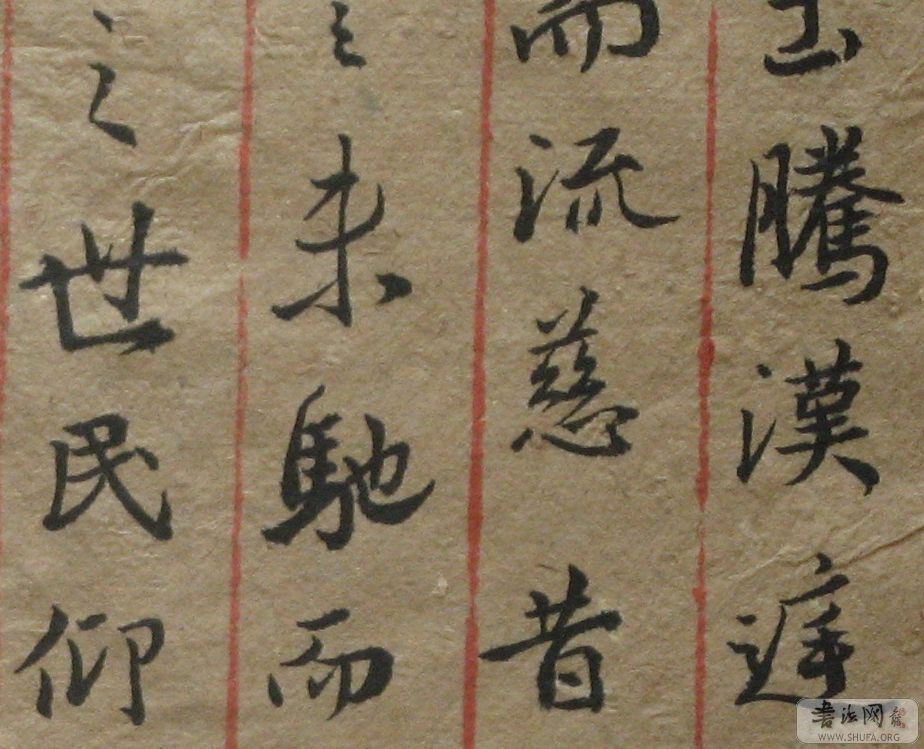 土騰漢庭
而流慈昔
言未馳而
之世民仰
書法网
WWW.SHUFA.ORG